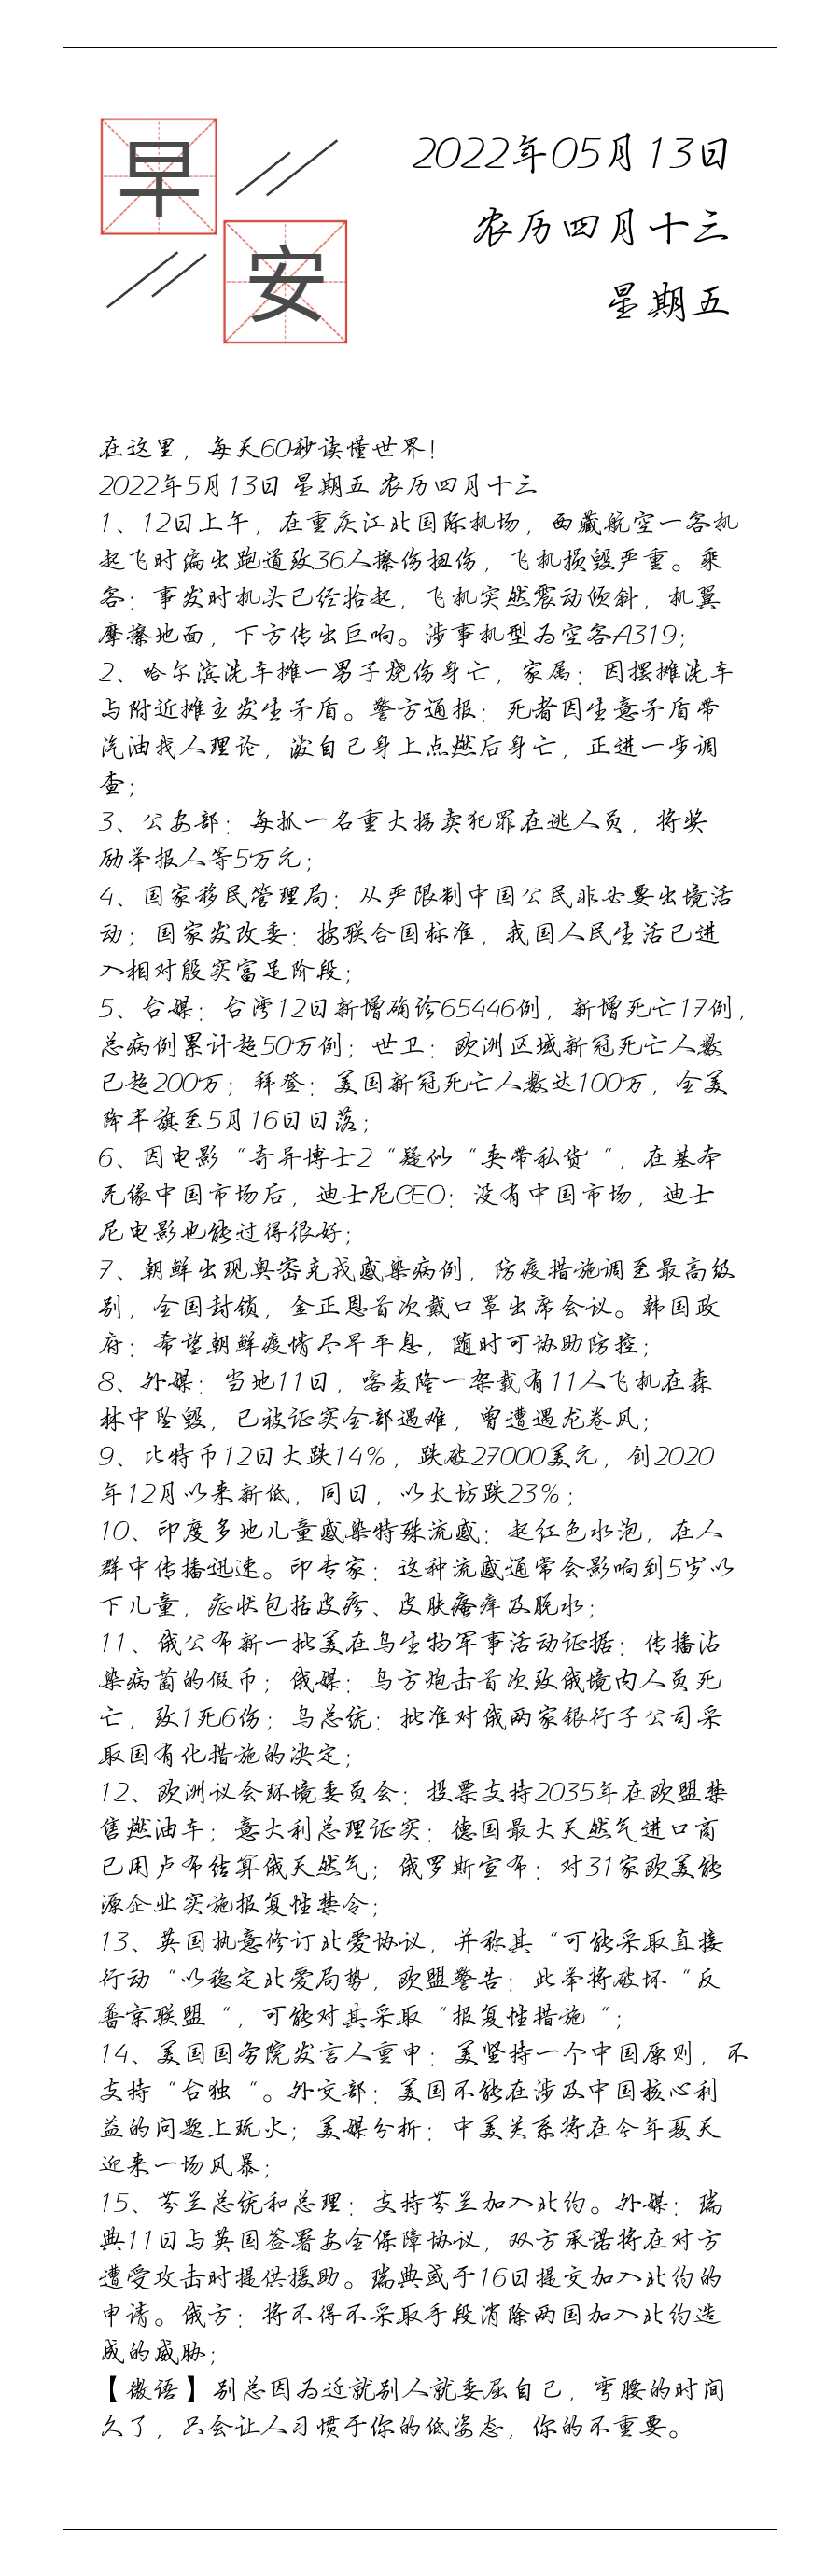 早安
2022年05月13日
农历四月十三
星期五
在这里，每天60秒读懂世界！
2022年5月13日 星期五 农历四月十三
1、12日上午，在重庆江北国际机场，西藏航空一客机
起飞时偏出跑道致36人擦伤扭伤，飞机损毁严重。乘
客：事发时机头已经抬起，飞机突然震动倾斜，机翼
摩擦地面，下方传出巨响。涉事机型为空客A319；
2、哈尔滨洗车摊一男子烧伤身亡，家属：因摆摊洗车
与附近摊主发生矛盾。警方通报：死者因生意矛盾带
汽油找人理论，泼自己身上点燃后身亡，正进一步调
查；
3、公安部：每抓一名重大拐卖犯罪在逃人员，将奖
励举报人等5万元；
4、国家移民管理局：从严限制中国公民非必要出境活
动；国家发改委：按联合国标准，我国人民生活已进
入相对殷实富足阶段；
5、台媒：台湾12日新增确诊65446例，新增死亡17例，
总病例累计超50万例；世卫：欧洲区域新冠死亡人数
已超200万；拜登：美国新冠死亡人数达100万，全美
降半旗至5月16日日落；
6、因电影“奇异博士2“疑似“夹带私货“，在基本
无缘中国市场后，迪士尼CEO：没有中国市场，迪士
尼电影也能过得很好；
7、朝鲜出现奥密克戎感染病例，防疫措施调至最高级
别，全国封锁，金正恩首次戴口罩出席会议。韩国政
府：希望朝鲜疫情尽早平息，随时可协助防控；
8、外媒：当地11日，喀麦隆一架载有11人飞机在森
林中坠毁，已被证实全部遇难，曾遭遇龙卷风；
9、比特币12日大跌14%，跌破27000美元，创2020
年12月以来新低，同日，以太坊跌23%；
10、印度多地儿童感染特殊流感：起红色水泡，在人
群中传播迅速。印专家：这种流感通常会影响到5岁以
下儿童，症状包括皮疹、皮肤瘙痒及脱水；
11、俄公布新一批美在乌生物军事活动证据：传播沾
染病菌的假币；俄媒：乌方炮击首次致俄境内人员死
亡，致1死6伤；乌总统：批准对俄两家银行子公司采
取国有化措施的决定；
12、欧洲议会环境委员会：投票支持2035年在欧盟禁
售燃油车；意大利总理证实：德国最大天然气进口商
已用卢布结算俄天然气；俄罗斯宣布：对31家欧美能
源企业实施报复性禁令；
13、英国执意修订北爱协议，并称其“可能采取直接
行动“以稳定北爱局势，欧盟警告：此举将破坏“反
普京联盟“，可能对其采取“报复性措施“；
14、美国国务院发言人重申：美坚持一个中国原则，不
支持“台独“。外交部：美国不能在涉及中国核心利
益的问题上玩火；美媒分析：中美关系将在今年夏天
迎来一场风暴；
15、芬兰总统和总理：支持芬兰加入北约。外媒：瑞
典11日与英国签署安全保障协议，双方承诺将在对方
遭受攻击时提供援助。瑞典或于16日提交加入北约的
申请。俄方：将不得不采取手段消除两国加入北约造
成的威胁；
【微语】别总因为迁就别人就委屈自己，弯腰的时间
久了，只会让人习惯于你的低姿态，你的不重要。